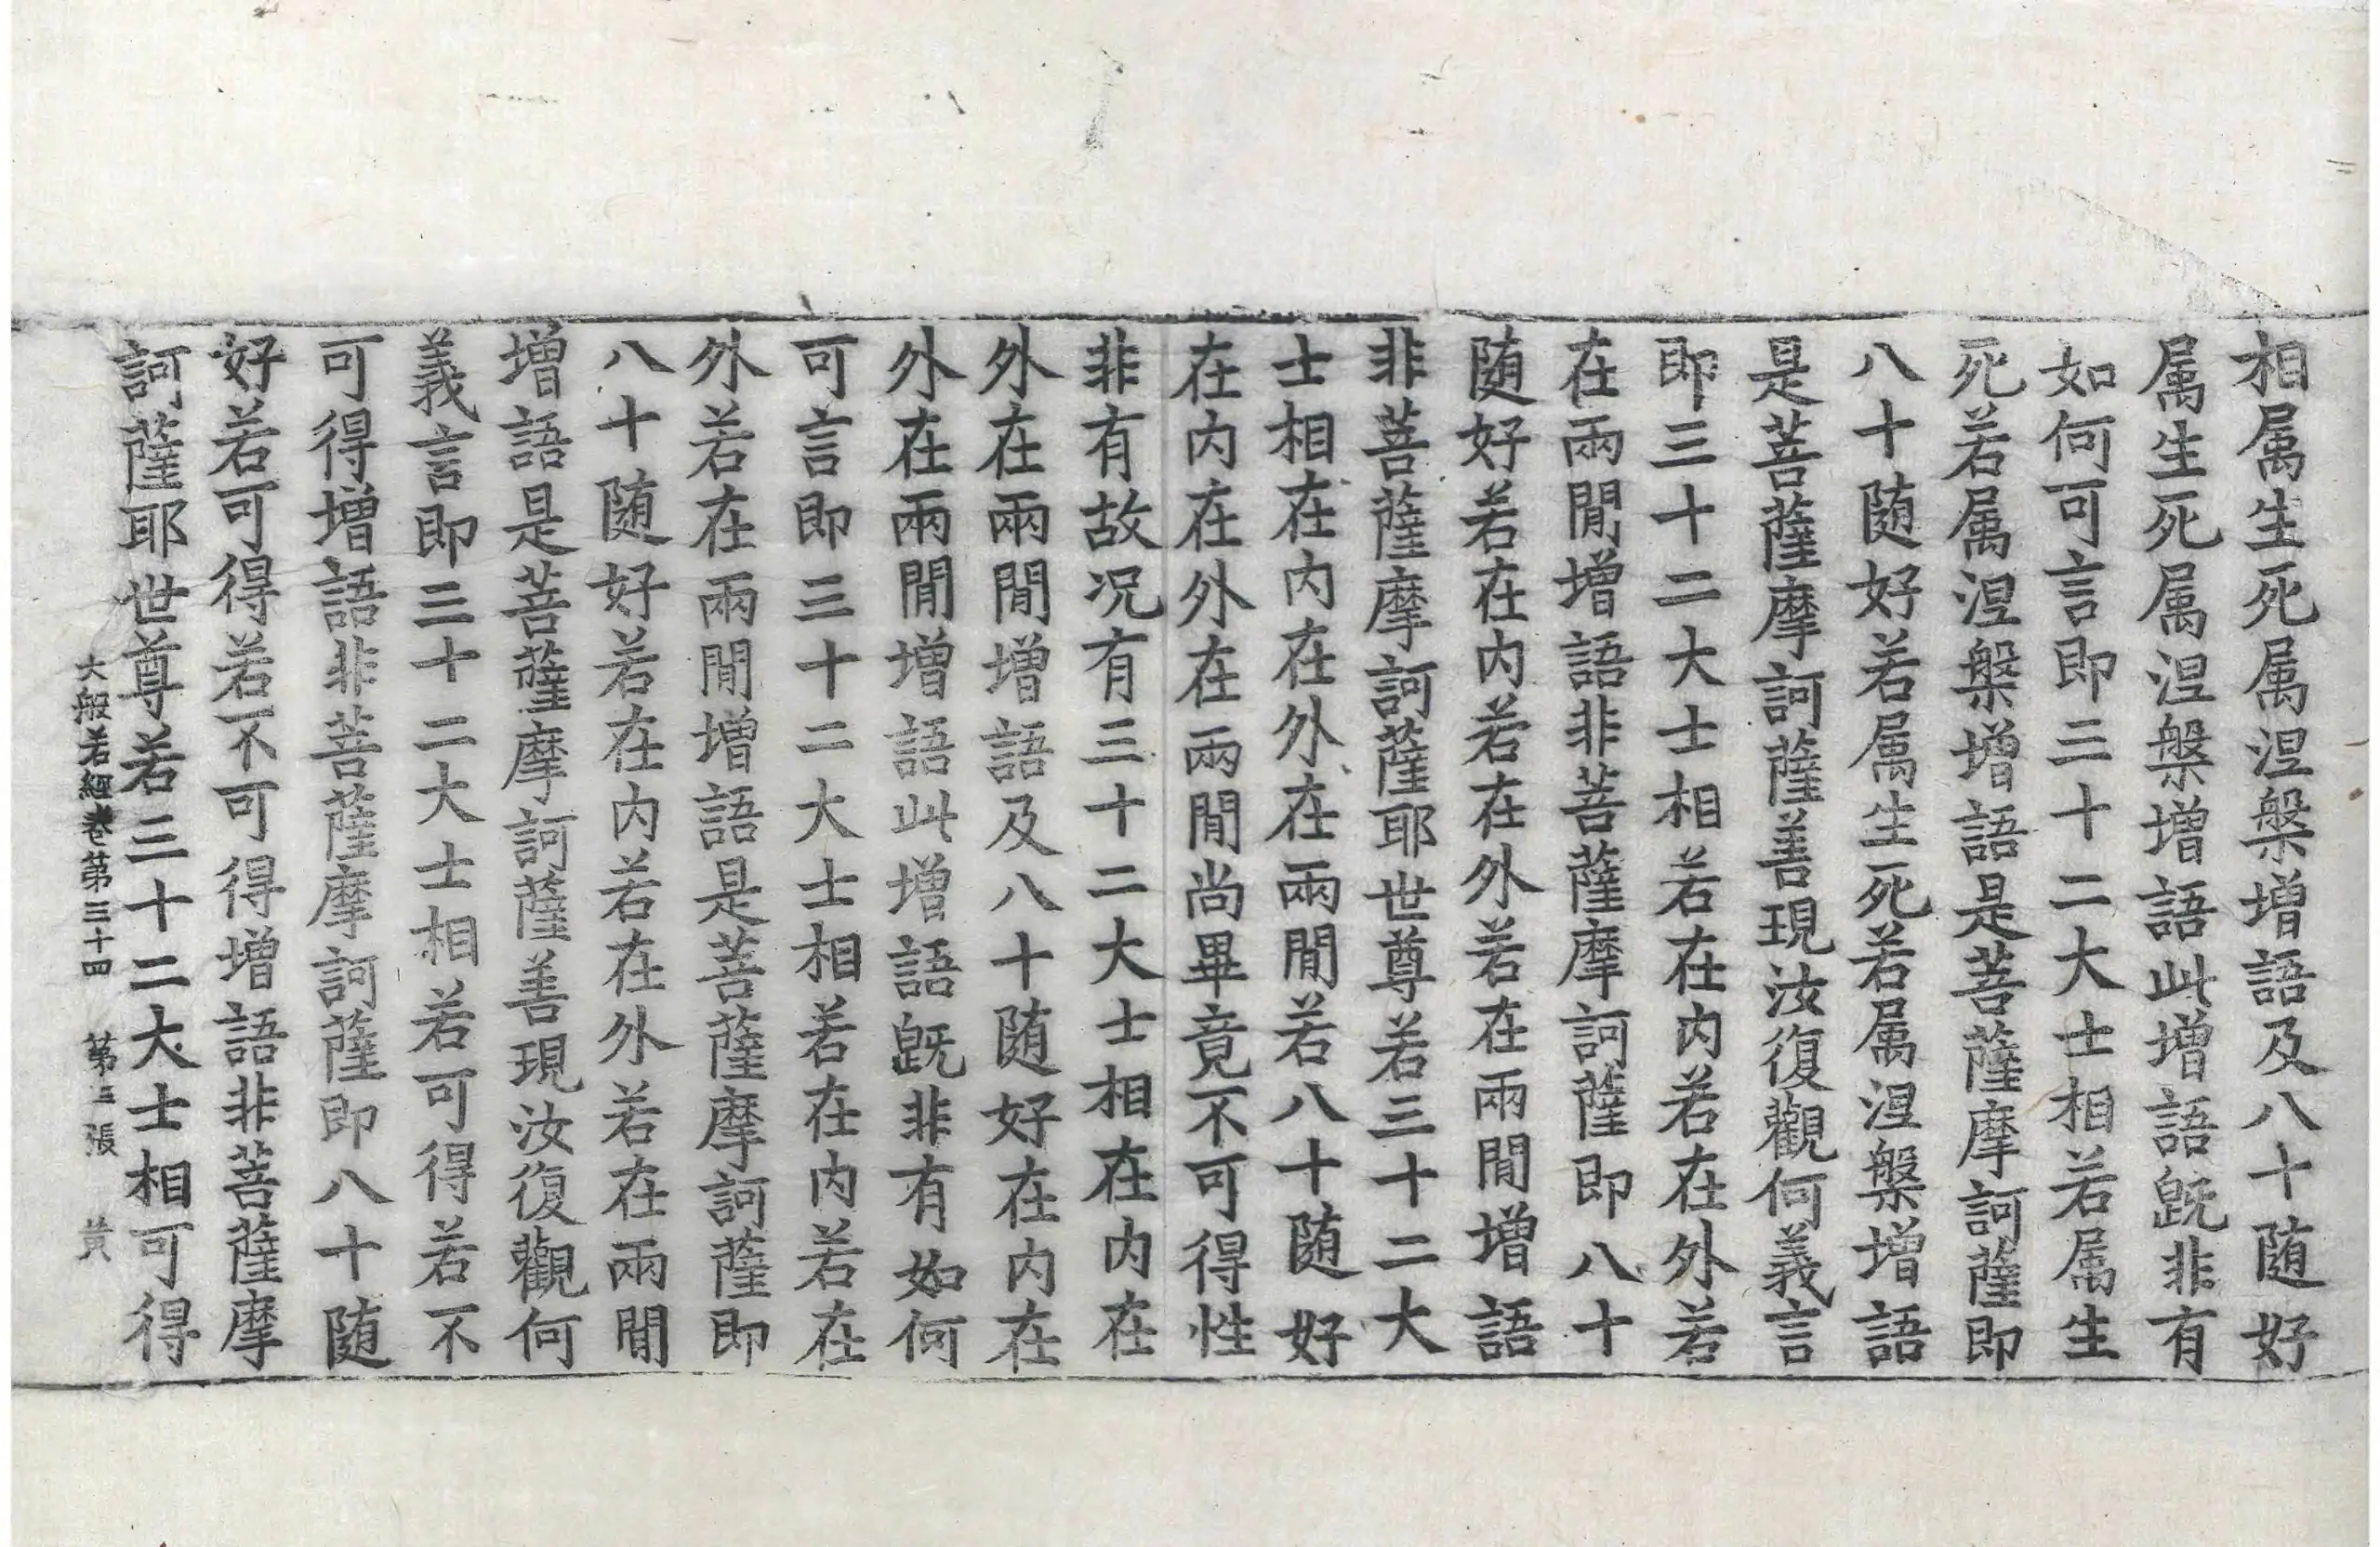 相属生死属涅槃增語及八十随好
属生死属涅槃增語此增語既非有
如何可言即三十二大士相若属生
死若属涅槃增語是菩薩摩訶薩即
八十随好若属生死若属涅槃增語
是菩薩摩訶薩善現汝復觀何義言
即三十二大士相若在内若在外若
在兩閒增語非菩薩摩訶薩即八十
随好若在内若在外若在兩閒增語
非菩薩摩訶薩耶世尊若三十二大
士相在内在外在兩閒若八十随好
在内在外在兩閒尚畢竟不可得性
非有故况有三十二大士相在内在
外在兩閒增語及八十随好在内在
外在兩閒增語此增語既非有如何
可言即三十二大士相若在内若在
外若在兩閒增語是菩薩摩訶薩即
八十随好若在内若在外若在兩閒
增語是菩薩摩訶薩善現汝復觀何
義言即三十二大士相若可得若不
可得增語非菩薩摩訶薩即八十随
好若可得若不可得增語非菩薩摩
訶薩耶世尊若三十二大士相可得
大般若經卷第三十四 第三張 黄